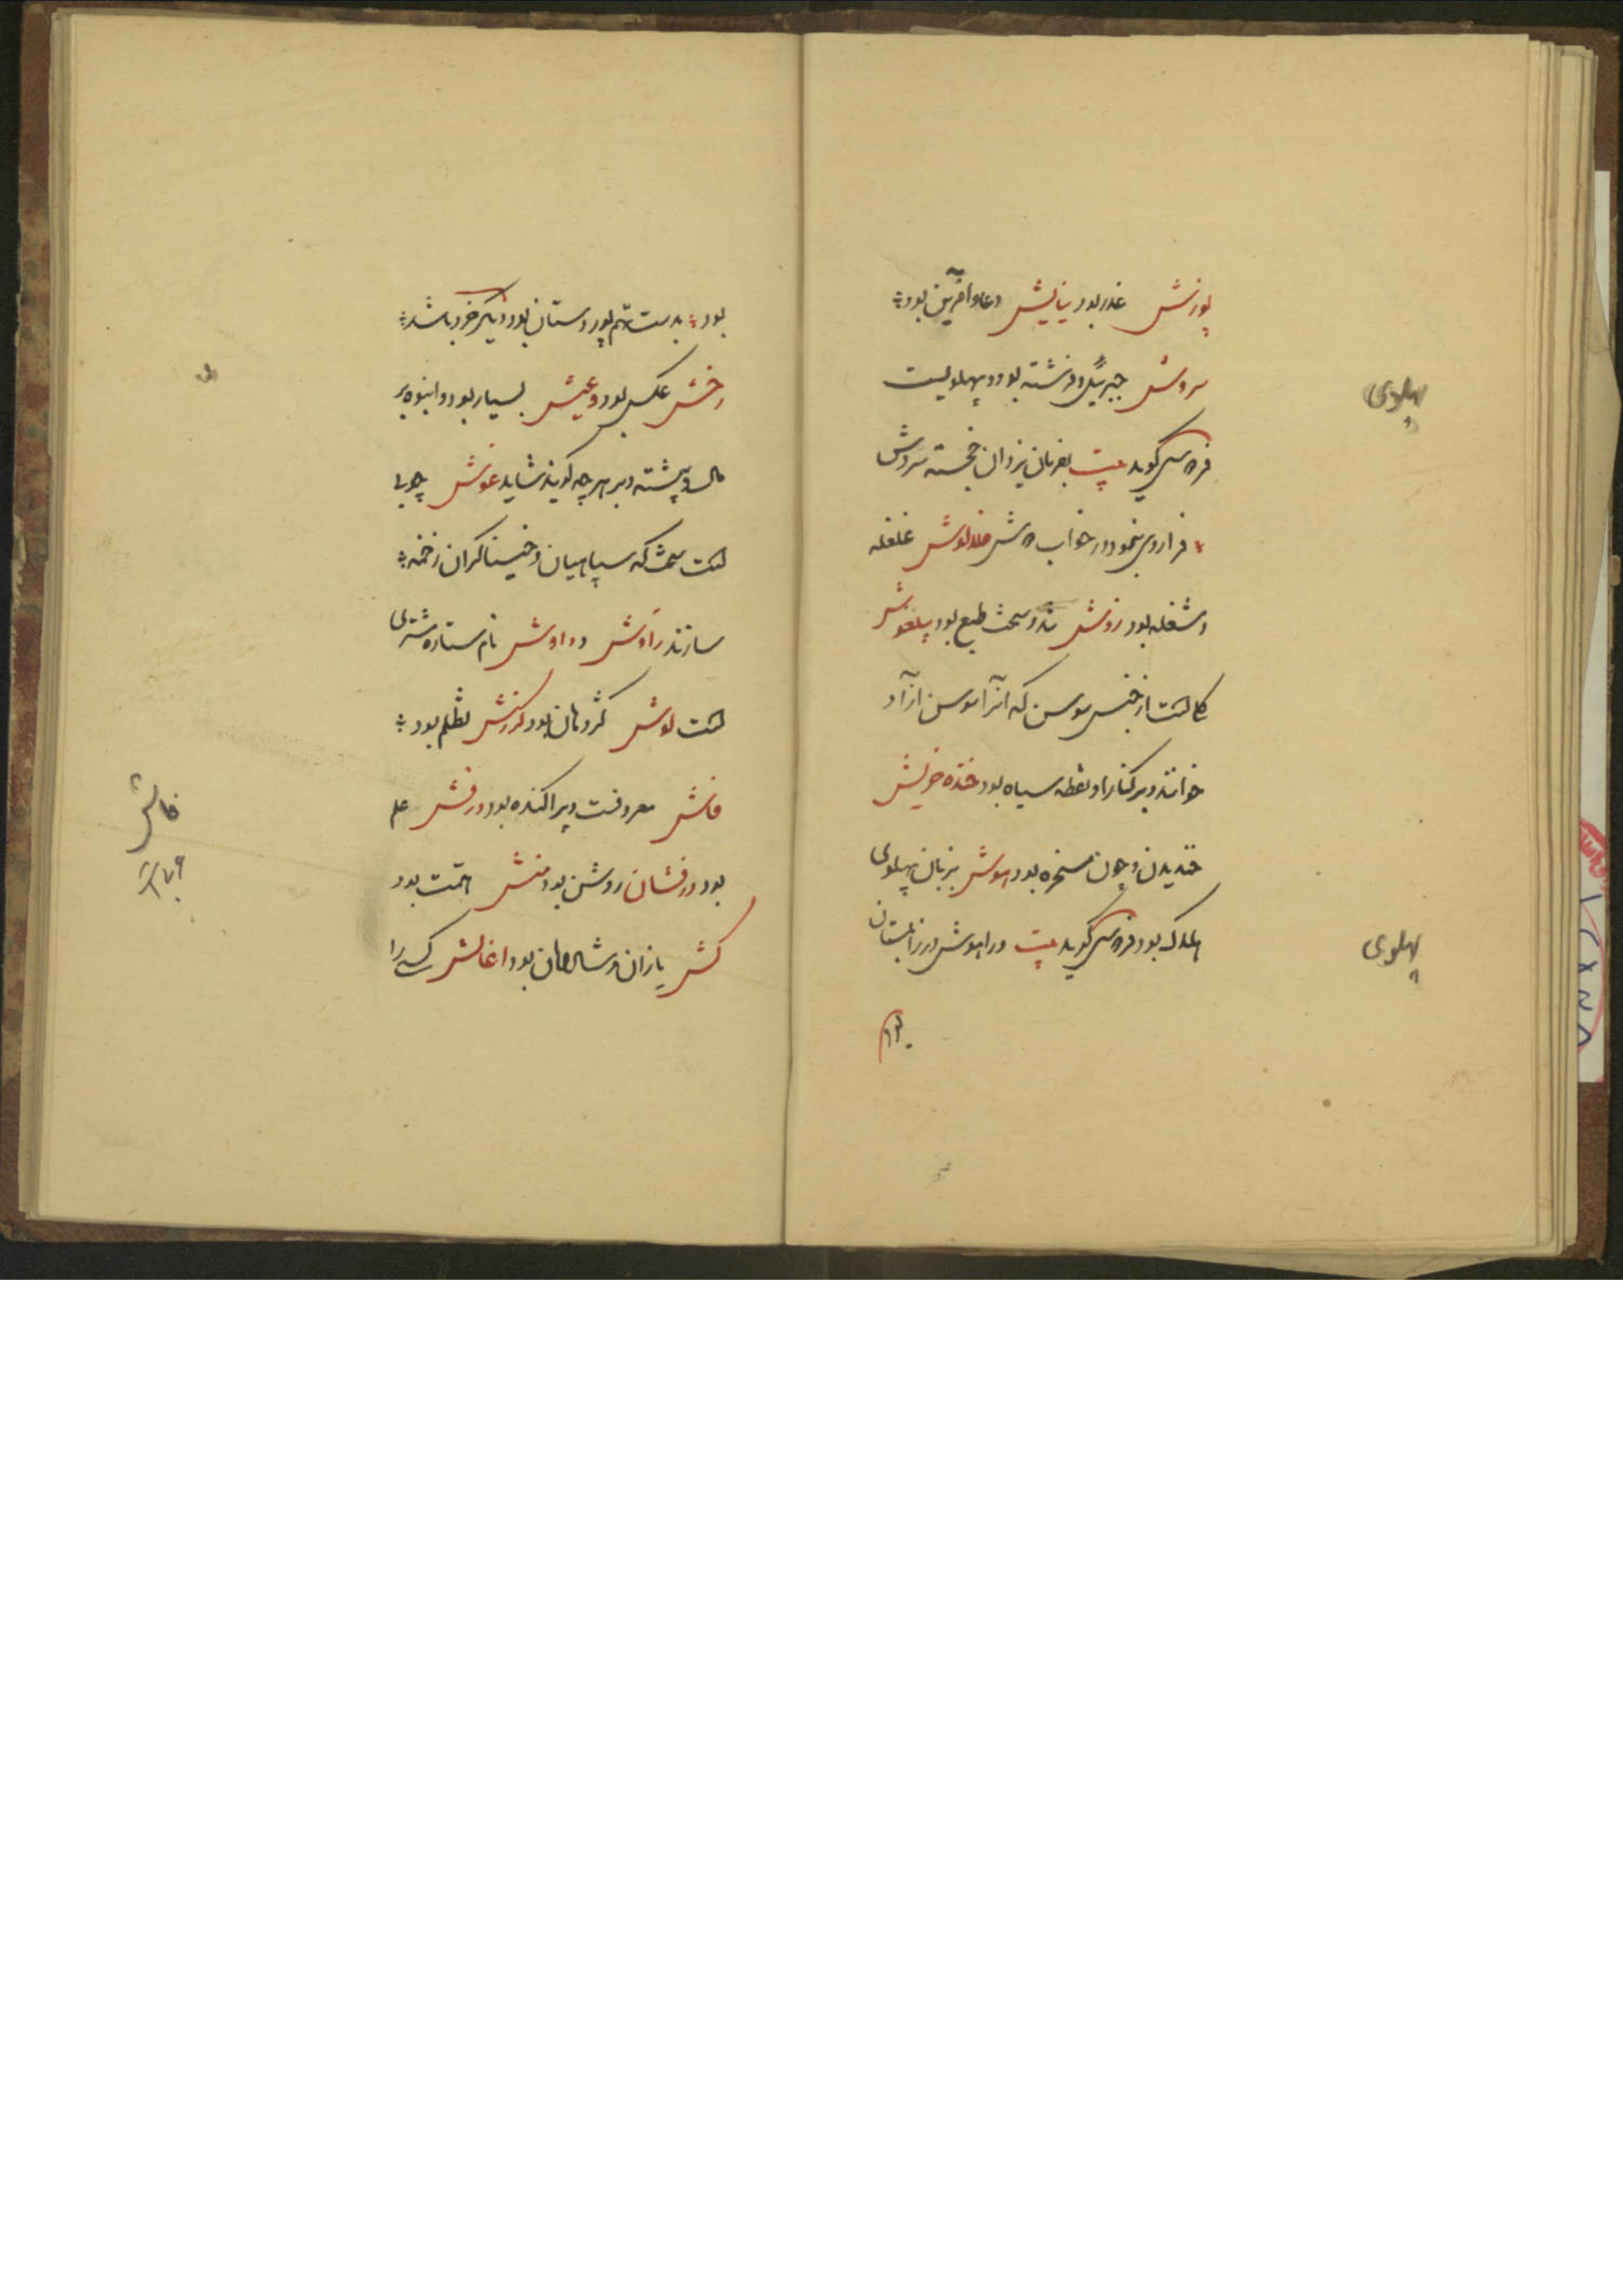 پوزش عذر بود نیایش دعا و آفرین بود
سروش جبرئیل و فرشته بود و پهلویست
پهلوی
فردوسی گوید بیت بفرمان یزدان خجسته سروش
فرا روی بنمود در خواب دوش خلالوش غلغله
و مشغله بود زوش تند و سخت طبع بود پیلغوش
گلست از جنس سوسن که آنرا سوسن آزاد
خوانند و بر کنار او نقطه سیاه بود خنده خریش
خندیدن و چون مسخره بود هوش بزبان پهلوی
هلاک بود فردوسی گوید بیت ورا هوش در زابلستان
پهلوی
بود
بود بدست تهم پور دستان بود و دیگر خرد باشد
رخش عکس بود و غیش بسیار بود و انبوه بر
مال و پیشته و بر هر چه گویند شاید غوش چوبی
است سخت که سپاهیان و خنیاگران زخمه
سازند زاوش و زواوش نام ستاره مشتری
است لوش کژ دهان بود گرزش تظلم بود
فاش معروفست و پراکنده بود درفش علم
بود درفشان روشن بود منش همت بود
کش یازان و شادمان بود اغالش کسی را
فاش